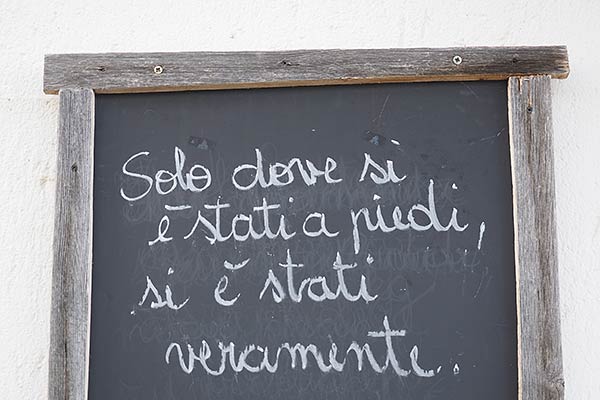 Solo dove si
è stati a piedi,
si è stati
veramente..